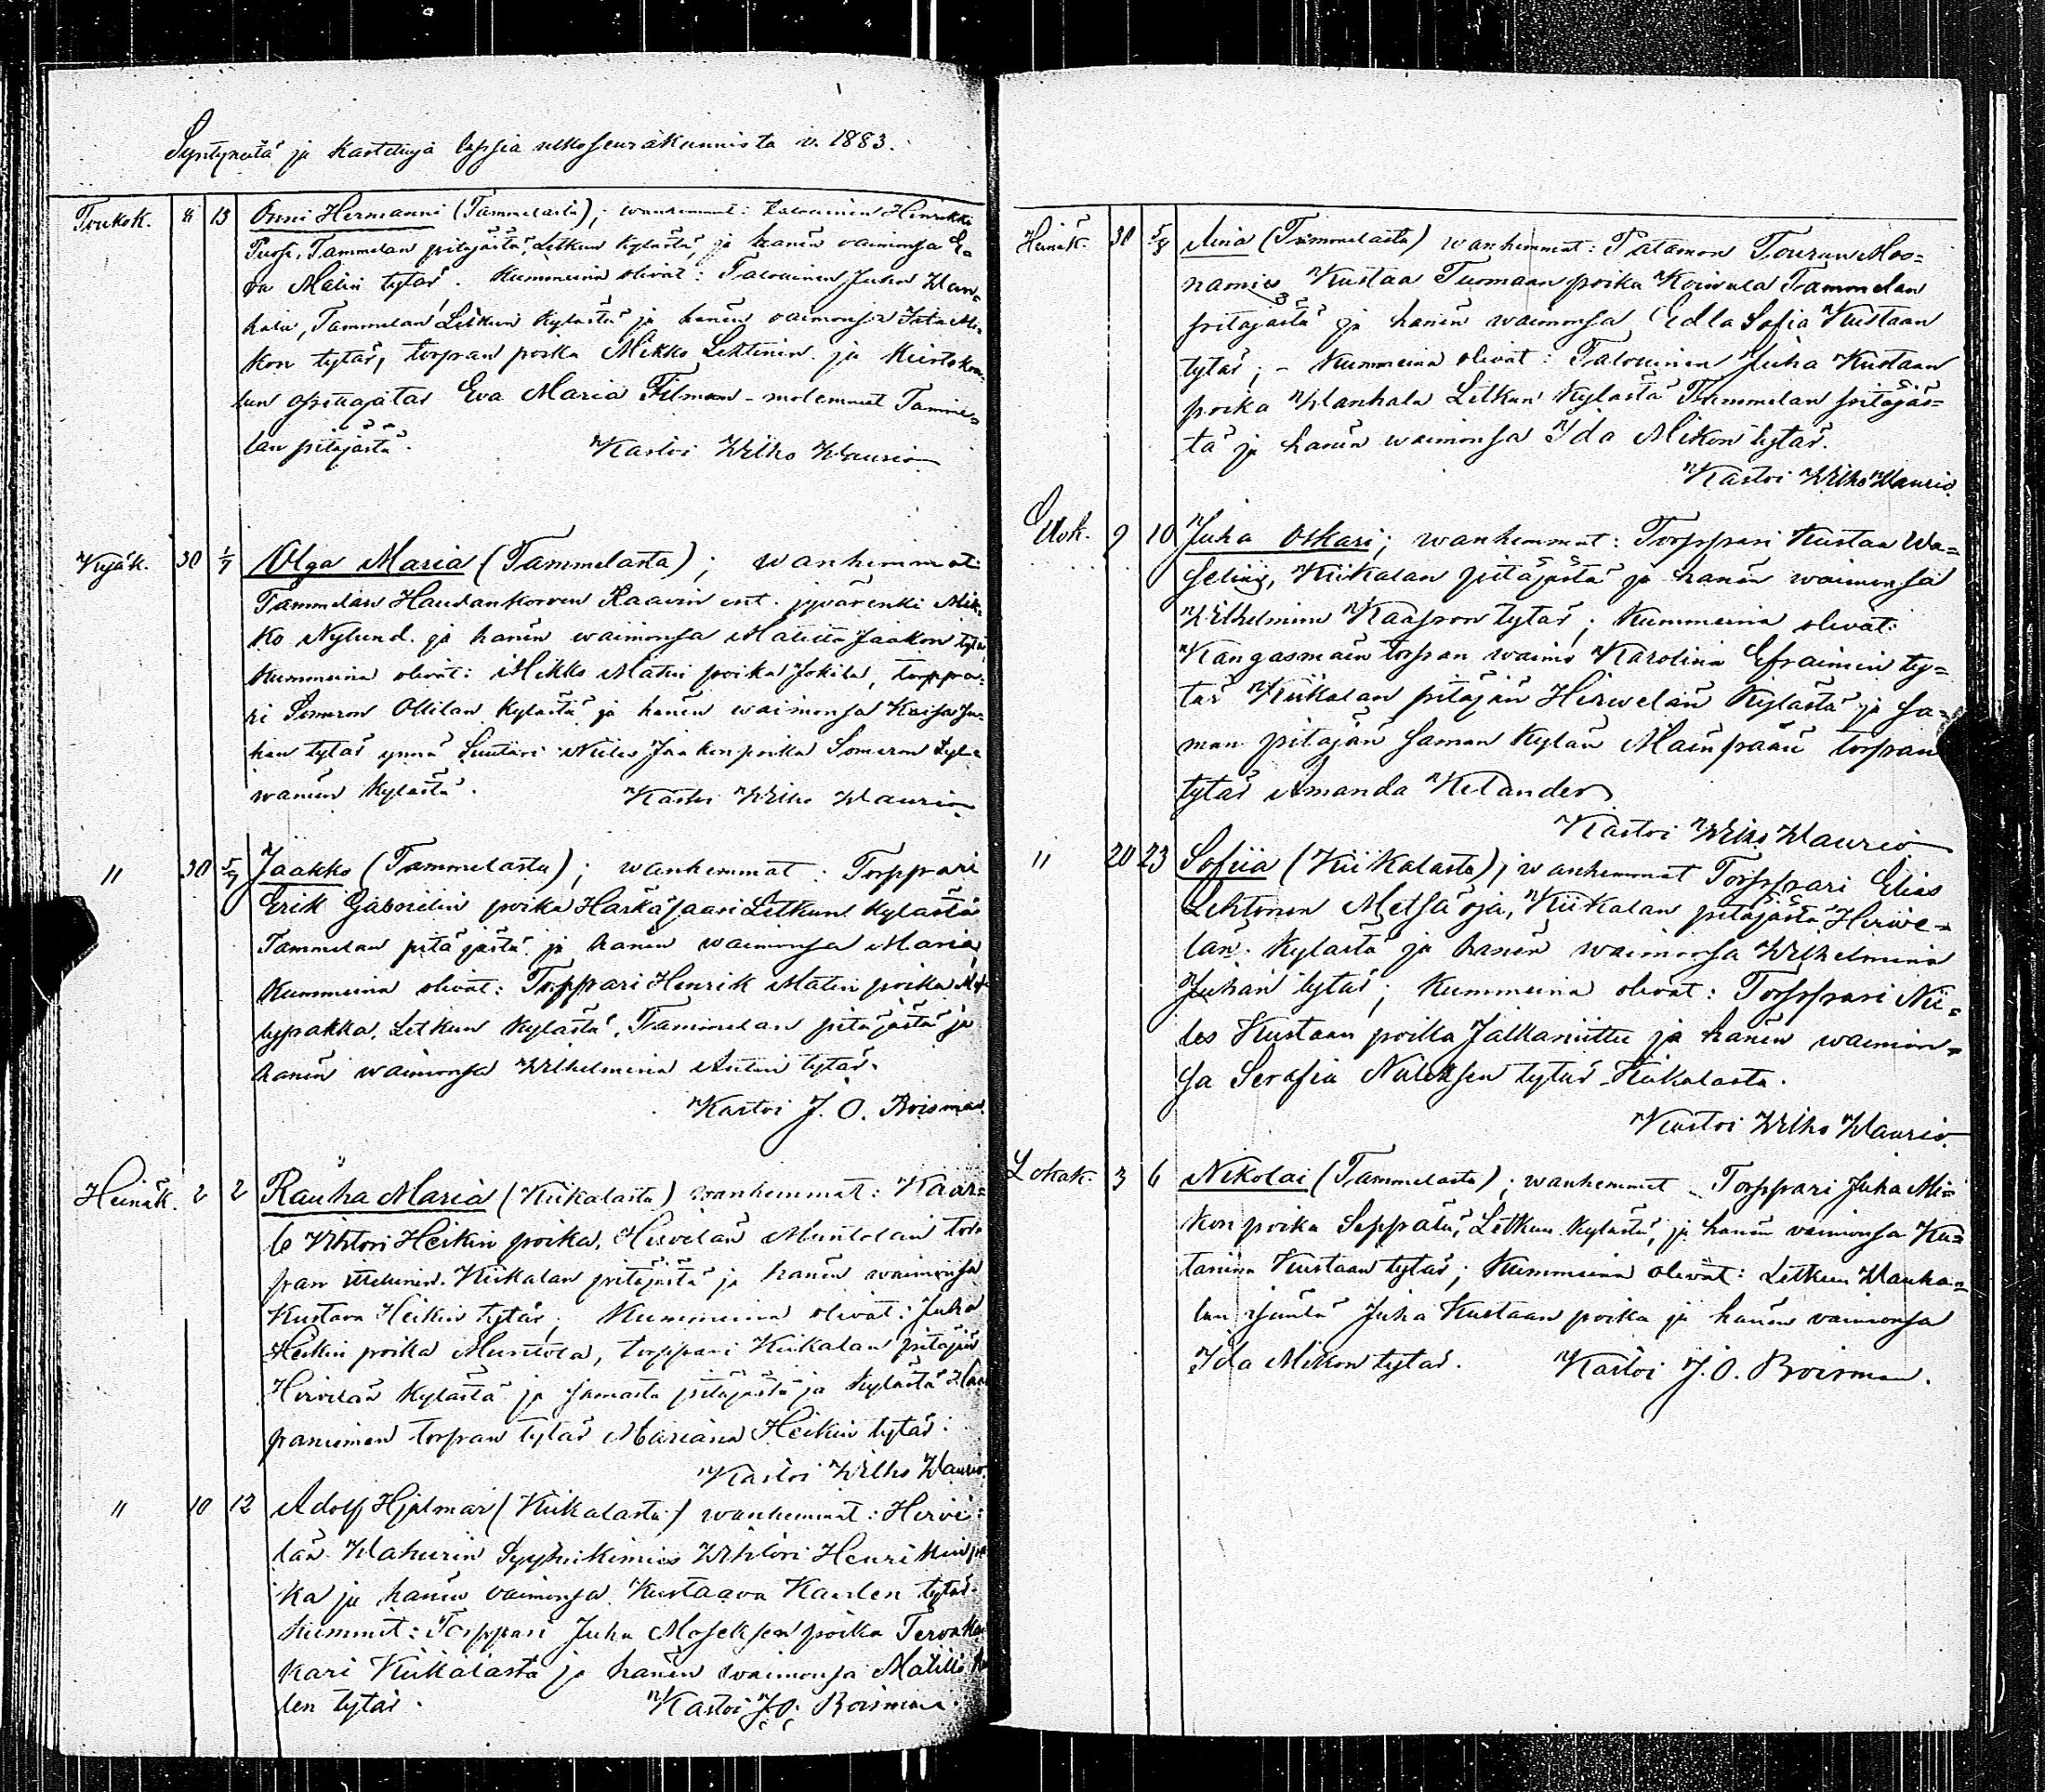 Syntyneitä ja kastetuja lapsia ulkoseurakunnista v. 1883.
Toukok. 8 13 Onni Hermanni (Tammelasta); wanhemmat: talouinen Henrikki
Tammelan pitäjästä, Letkun kylästä, ja hänen vaimonsa E-
va Matin tytär. Kummeina olivat: Talouinen Juha Wan-
hala, Tammelan Letkun kylästä ja hänen vaimonsa Ida Mi-
kon tytär, torpan poika Mikko Lehtinen ja kiertokou-
lun opettajatar Eva Maria Filman - molemmat Tamme-
lan pitäjästä. Kastoi Wilho Waurio
Kesäk. 30 1/7 Olga Maria (Tammelasta); wanhemmat:
Tammelan Haudankorven Raavin ent. jyvärenki Mik-
ko Nylund ja hänen waimonsa Matilda Jaakon tytär,
Kummeina olivat: Mikko Matin poika Jokila, torppa-
ri Someron Ollilan kylästä ja hänen waimonsa Kaisa Ju-
han tytär ynnä Suutari Niilo Jaakon poika Someron Syl-
wänän kylästä. Kastoi Wilho Waurio
" 30 5/7 Jaakko (Tammelasta); wanhemmat: Torppari
Erik Gabrielin poika Härkäsaari Letkun kylästä
Tammelan pitäjästä ja hänen waimonsa Maria,
Kummeina olivat: Torppari Henrik Matin poika
Letkun kylästä, Tammelan pitäjästä ja
hänen waimonsa Wilhelmina Antin tytär.
Kastoi J. O. Roisman.
Heinäk. 2 2 Rauha Maria (Kiikalasta) wanhemmat: Kaar-
lo Wihtori Heikin poika, Hirvelän Muntolan tor-
pan Kiikalan pitäjästä ja hänen waimonsa
Kustava Heikin tytär; Kummeina olivat: Juha
Heikin poika Muntola, torppari Kiikalan pitäjän
Hirvelän kylästä ja samasta pitäjästä ja kylästä
torpan tytär Mariana Heikin tytär.
Kastoi Wilho Waurio.
" 10 12 Adolf Hjalmar (Kiikalasta) wanhemmat: Hirve-
län Wahurin Wihtori Henrikin poi-
ka ja hänen vaimonsa Kustaava Kaarlen tytär.
Kummit: Torppari Juha Moseksen poika
kari Kiikalasta ja hänen waimonsa Matilda Kaar-
len tytär. Kastoi J. O. Roisman.
Heinäk. 30 5/8 Aina (Tammelasta) wanhemmat: Patamon Tourun Moo-
namies Kustaa Tuomaan poika Koiwula Tammelan
pitäjästä ja hänen waimonsa Edla Sofia Kustaan
tytär; - Kummeina olivat: Talouinen Juha Kustaan
poika Wanhala Letkun kylästä Tammelan pitäjäs-
tä ja hänen waimonsa Ida Mikon tytär.
Kastoi Wilho Waurio.
Elok. 9 10 Juha Oskari; wanhemmat: Torppari Kustaa Wa-
selius, Kiikalan pitäjästä ja hänen waimonsa
Wilhelmina Kaapron tytär; Kummeina olivat:
Kangasmäen torpan waimo Karolina Efraimin ty-
tär Kiikalan pitäjän Hirwelän kylästä ja sa-
man pitäjän saman kylän Mäenpään torpan
tytär Amanda Kelander
Kastoi Wilho Waurio
" 20 23 Sofiia (Kiikalasta); wanhemmat Torppari Elias
Lehtonen Metsäoja, Kiikalan pitäjästä Hirwe-
län kylästä ja hänen waimonsa Wilhelmina
Juhan tytär; Kummeina olivat: Torppari Nii-
les Kustaan poika Jalkaniittu ja hänen waimon-
sa Serafia Niileksen tytär Kiikalasta.
Kastoi Wilho Waurio.
Lokak. 3 6 Nikolai (Tammelasta); wanhemmat Torppari Juha Mi-
kon poika Seppälä, Letkun kylästä, ja hänen vaimonsa Ka-
tariina Kustaan tytär; Kummeina olivat: Letkun Wanha-
lan isäntä Juha Kustaan poika ja hänen vaimonsa
Ida Mikon tytär. Kastoi J. O. Roisman.